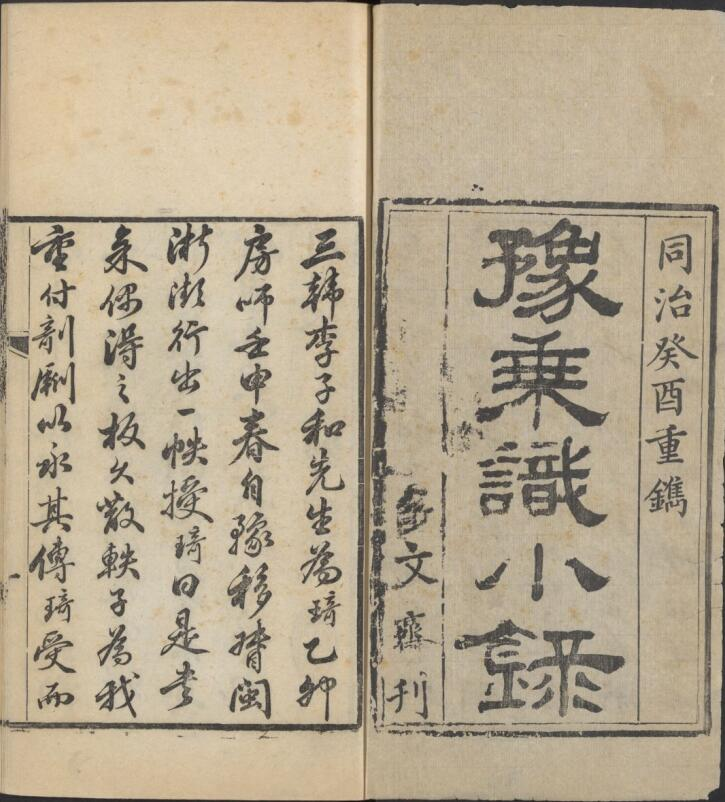 同治癸酉重鐫
豫乘識小錄
文齋刊
三韓李子和先生為琦乙卯
房師壬申春自豫移督閩
浙瀕行出一帙授琦曰是書
余偶得之板久散軼子為我
重付剞劂以永其傳琦受而